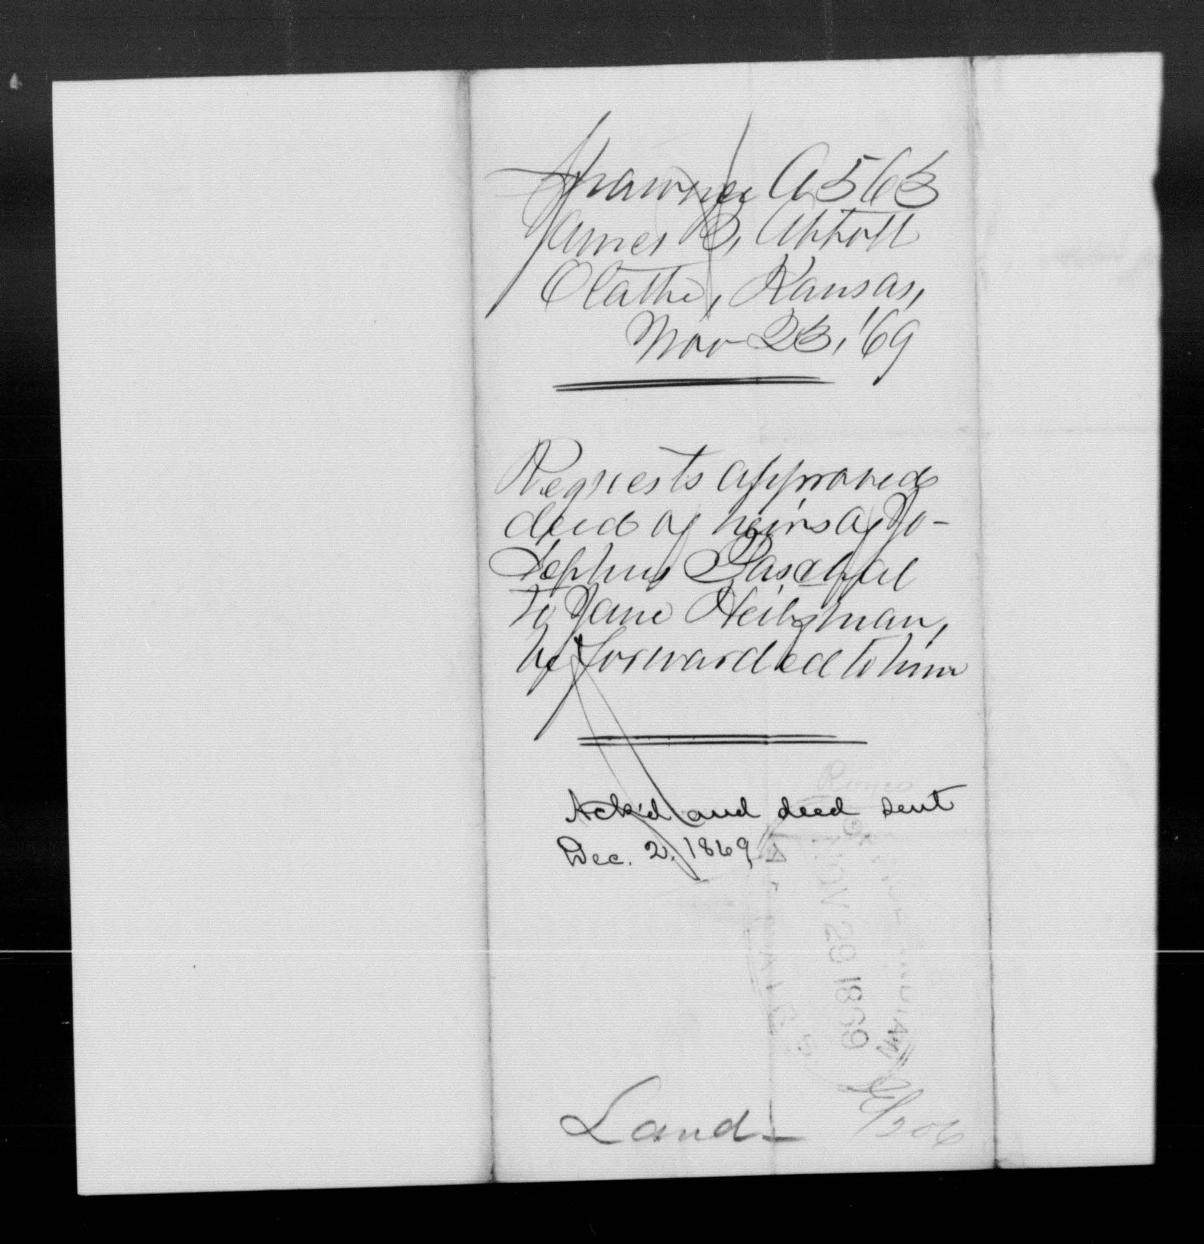 Shawnee A 563
James B. Abbott
Olathe, Kansas,
Nov 23, '69
Requests approved
deed of heirs of Jo-
sephus Paschal
to Jane Heibzman,
be forwarded to him
Ack'd and deed sent
Dec. 2, 1869
Rec'd
NOV 29 1869
Land